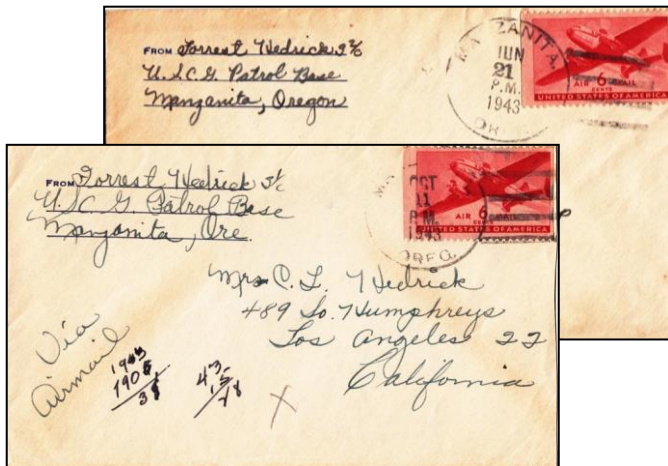 FROM Forrest Hedrick 2/c
U.S.C.G. Patrol Base
Manzanita, Oregon
MANZANITA,
JUN
21
P.M.
1943
OREG.
AIR 6 MAIL
CENTS
UNITED STATES OF AMERICA
FROM Forrest Hedrick S 1/c
U.S.C.G. Patrol Base
Manzanita, Ore.
OCT
11
P.M.
1943
OREG.
AIR 6 MAIL
CENTS
UNITED STATES OF AMERICA
Mrs C. L. Hedrick
489 So. Humphreys
Los Angeles 22
California
Via
Airmail
1943
1905
38
43
15